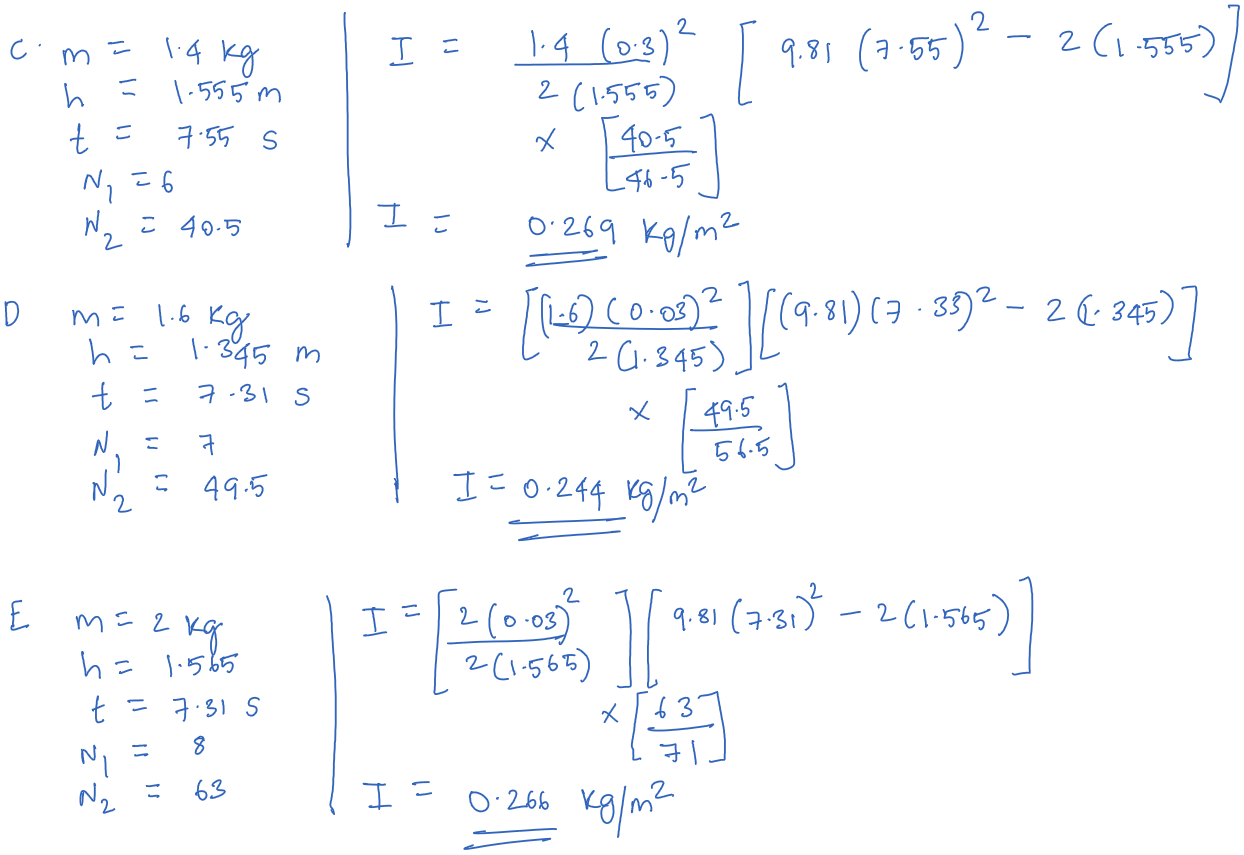 C. m = 1.4 kg
h = 1.555 m
t = 7.55 s
N₁ = 6
N₂ = 40.5
I = 1.4 (0.3)² / 2 (1.555) [ 9.81 (7.55)² - 2 (1.555) ]
× [ 40.5 / 46.5 ]
I = 0.269 kg/m²
D m = 1.6 kg
h = 1.345 m
t = 7.31 s
N₁ = 7
N₂ = 49.5
I = [ (1.6) (0.03)² / 2 (1.345) ] [ (9.81) (7.33)² - 2 (1.345) ]
× [ 49.5 / 56.5 ]
I = 0.244 kg/m²
E m = 2 kg
h = 1.565
t = 7.31 s
N₁ = 8
N₂ = 63
I = [ 2 (0.03)² / 2 (1.565) ] [ 9.81 (7.31)² - 2 (1.565) ]
× [ 63 / 71 ]
I = 0.266 kg/m²